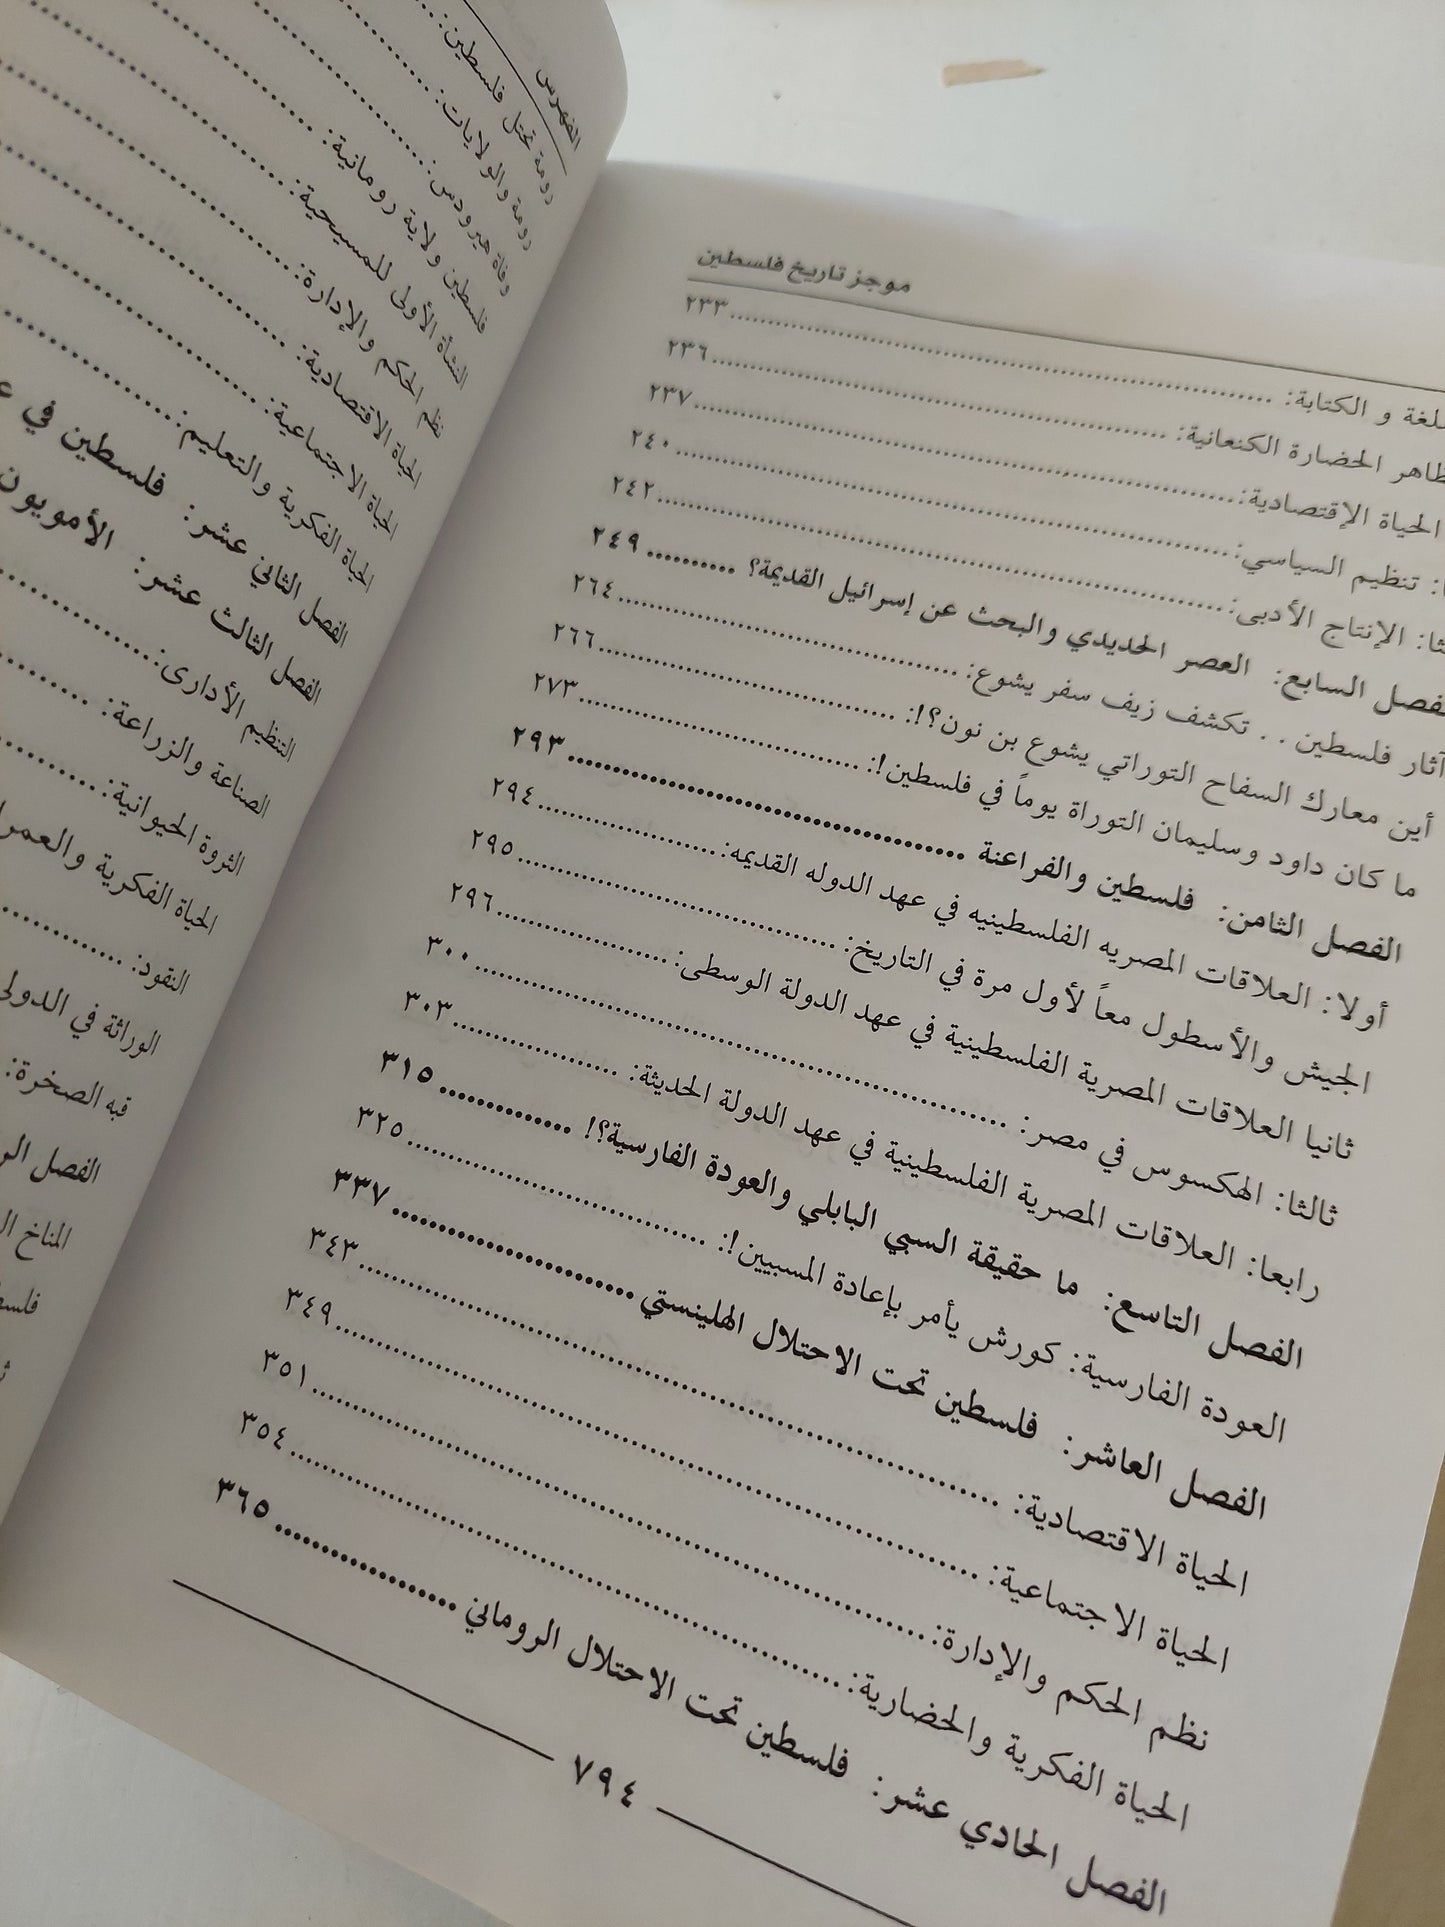 موجز تاريخ فلسطين
و الكتابة: ........ ٢٣٣
الحضارة الكنعانية: ........ ٢٣٦
الحياة الإقتصادية: ........ ٢٣٧
تنظيم السياسي: ........ ٢٤٠
الإنتاج الأدبى: ........ ٢٤٢
السابع: العصر الحديدي والبحث عن إسرائيل القديمة؟ ........ ٢٤٩
آثار فلسطين . . تكشف زيف سفر يشوع: ........ ٢٦٤
أين معارك السفاح التوراتي يشوع بن نون؟!: ........ ٢٦٦
ما كان داود وسليمان التوراة يوماً في فلسطين!: ........ ٢٧٣
الفصل الثامن: فلسطين والفراعنة ........ ٢٩٣
أولا: العلاقات المصريه الفلسطينيه في عهد الدوله القديمه: ........ ٢٩٤
الجيش والأسطول معاً لأول مرة في التاريخ: ........ ٢٩٥
ثانيا العلاقات المصرية الفلسطينية في عهد الدولة الوسطى: ........ ٢٩٦
ثالثا: الهكسوس في مصر: ........ ٣٠٠
رابعا: العلاقات المصرية الفلسطينية في عهد الدولة الحديثة: ........ ٣٠٣
الفصل التاسع: ما حقيقة السبي البابلي والعودة الفارسية؟! ........ ٣١٥
العودة الفارسية: كورش يأمر بإعادة المسبيين!: ........ ٣٢٥
الفصل العاشر: فلسطين تحت الاحتلال الهلينستي ........ ٣٣٧
الحياة الاقتصادية: ........ ٣٤٣
الحياة الاجتماعية: ........ ٣٤٩
نظم الحكم والإدارة: ........ ٣٥١
الحياة الفكرية والحضارية: ........ ٣٥٤
الفصل الحادي عشر: فلسطين تحت الاحتلال الروماني ........ ٣٦٥
٧٩٤
الفهرس
رومة تحتل فلسطين: ........
رومة والولايات: ........
وفاة هيرودس: ........
فلسطين ولاية رومانية: ........
النشأة الأولى للمسيحية: ........
نظم الحكم والإدارة: ........
الحياة الاقتصادية: ........
الحياة الاجتماعية: ........
الحياة الفكرية والتعليم: ........
الفصل الثاني عشر: فلسطين في
الفصل الثالث عشر: الأمويون
التنظيم الأدارى: ........
الصناعة والزراعة: ........
الثروة الحيوانية: ........
الحياة الفكرية
النقود: ........
الوراثة في
قبه الصخرة:
الفصل
المناخ